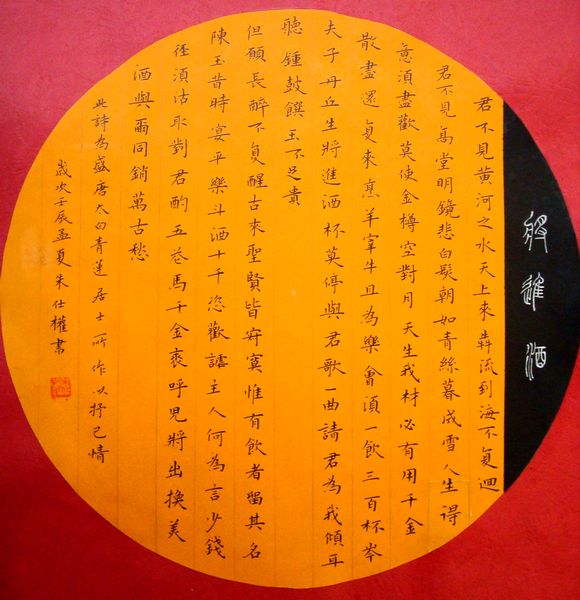 將進酒
君不見黃河之水天上來犇流到海不复迴
君不見高堂明鏡悲白髮朝如青絲暮成雪人生得
意須盡歡莫使金樽空對月天生我材必有用千金
散盡還复來烹羊宰牛且為樂會須一飲三百杯岑
夫子丹丘生將進酒杯莫停與君歌一曲請君為我傾耳
聽鍾鼓饌玉不足貴
但願長醉不复醒古來聖賢皆寂寞惟有飲者留其名
陳玉昔時宴平樂斗酒十千恣歡謔主人何為言少錢
徑須沽取對君酌五花馬千金裘呼兒將出換美
酒與爾同銷萬古愁
此詩為盛唐太白青蓮居士所作以抒己情
歲次壬辰孟夏朱仕權書